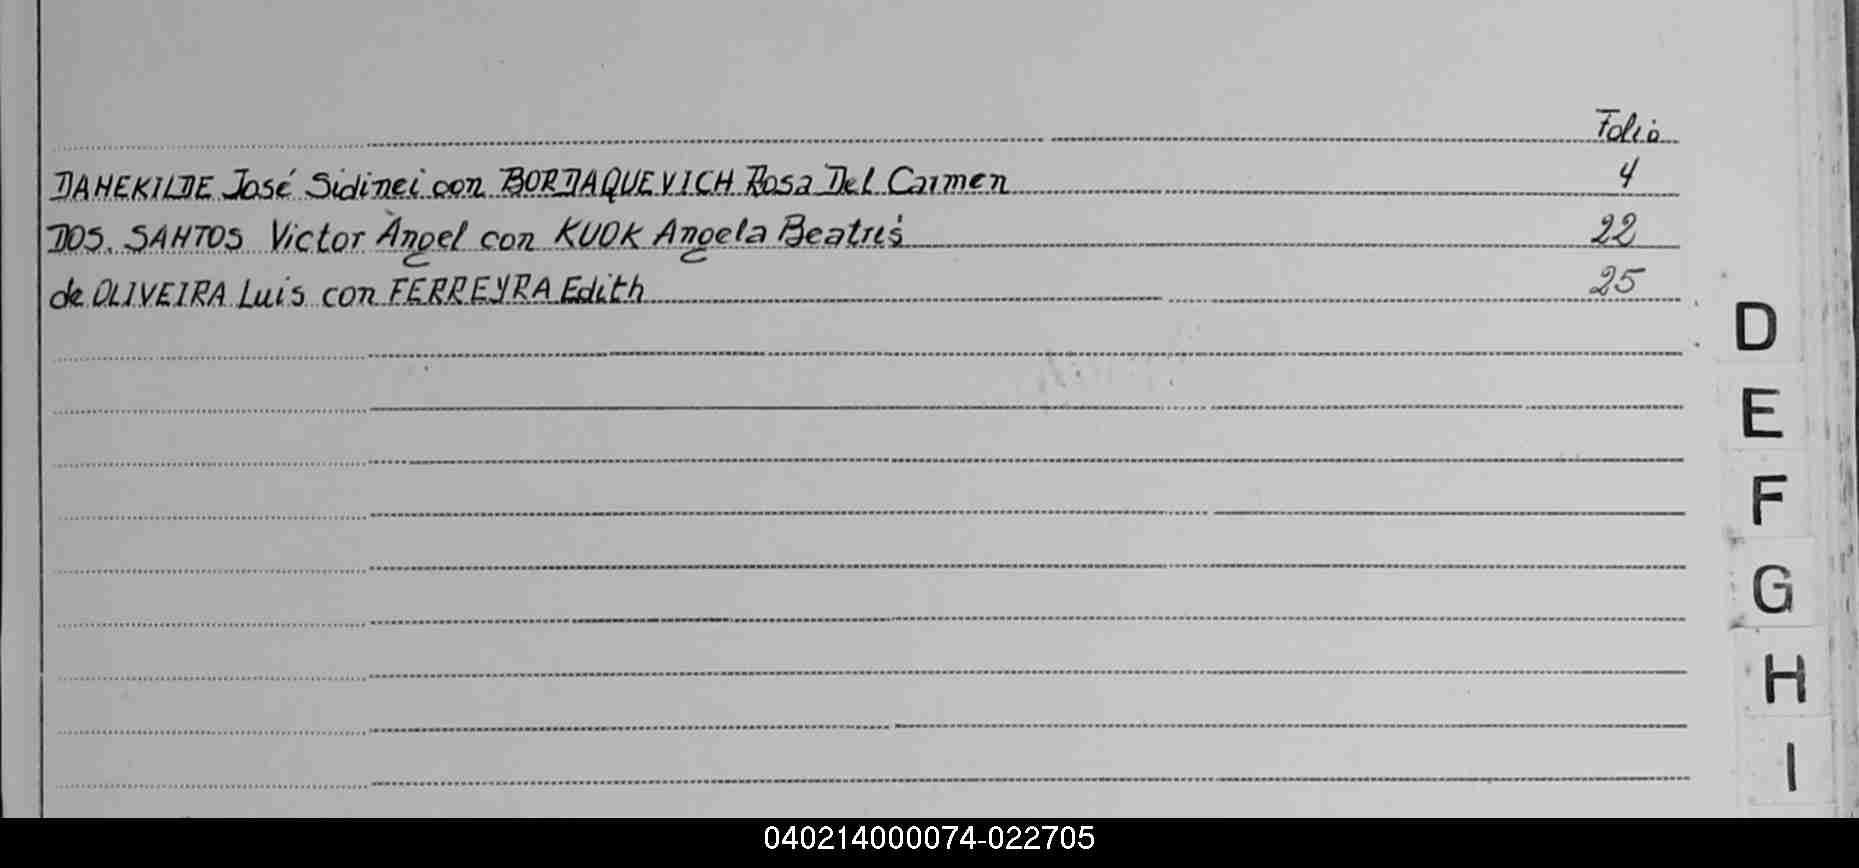 Folio
DAHEKILDE José Sidinei con BORDAQUEVICH Rosa Del Carmen 4
DOS. SANTOS Victor Angel con KUOK Angela Beatris 22
de OLIVEIRA Luis con FERREYRA Edith 25
D
E
F
G
H
I
040214000074-022705